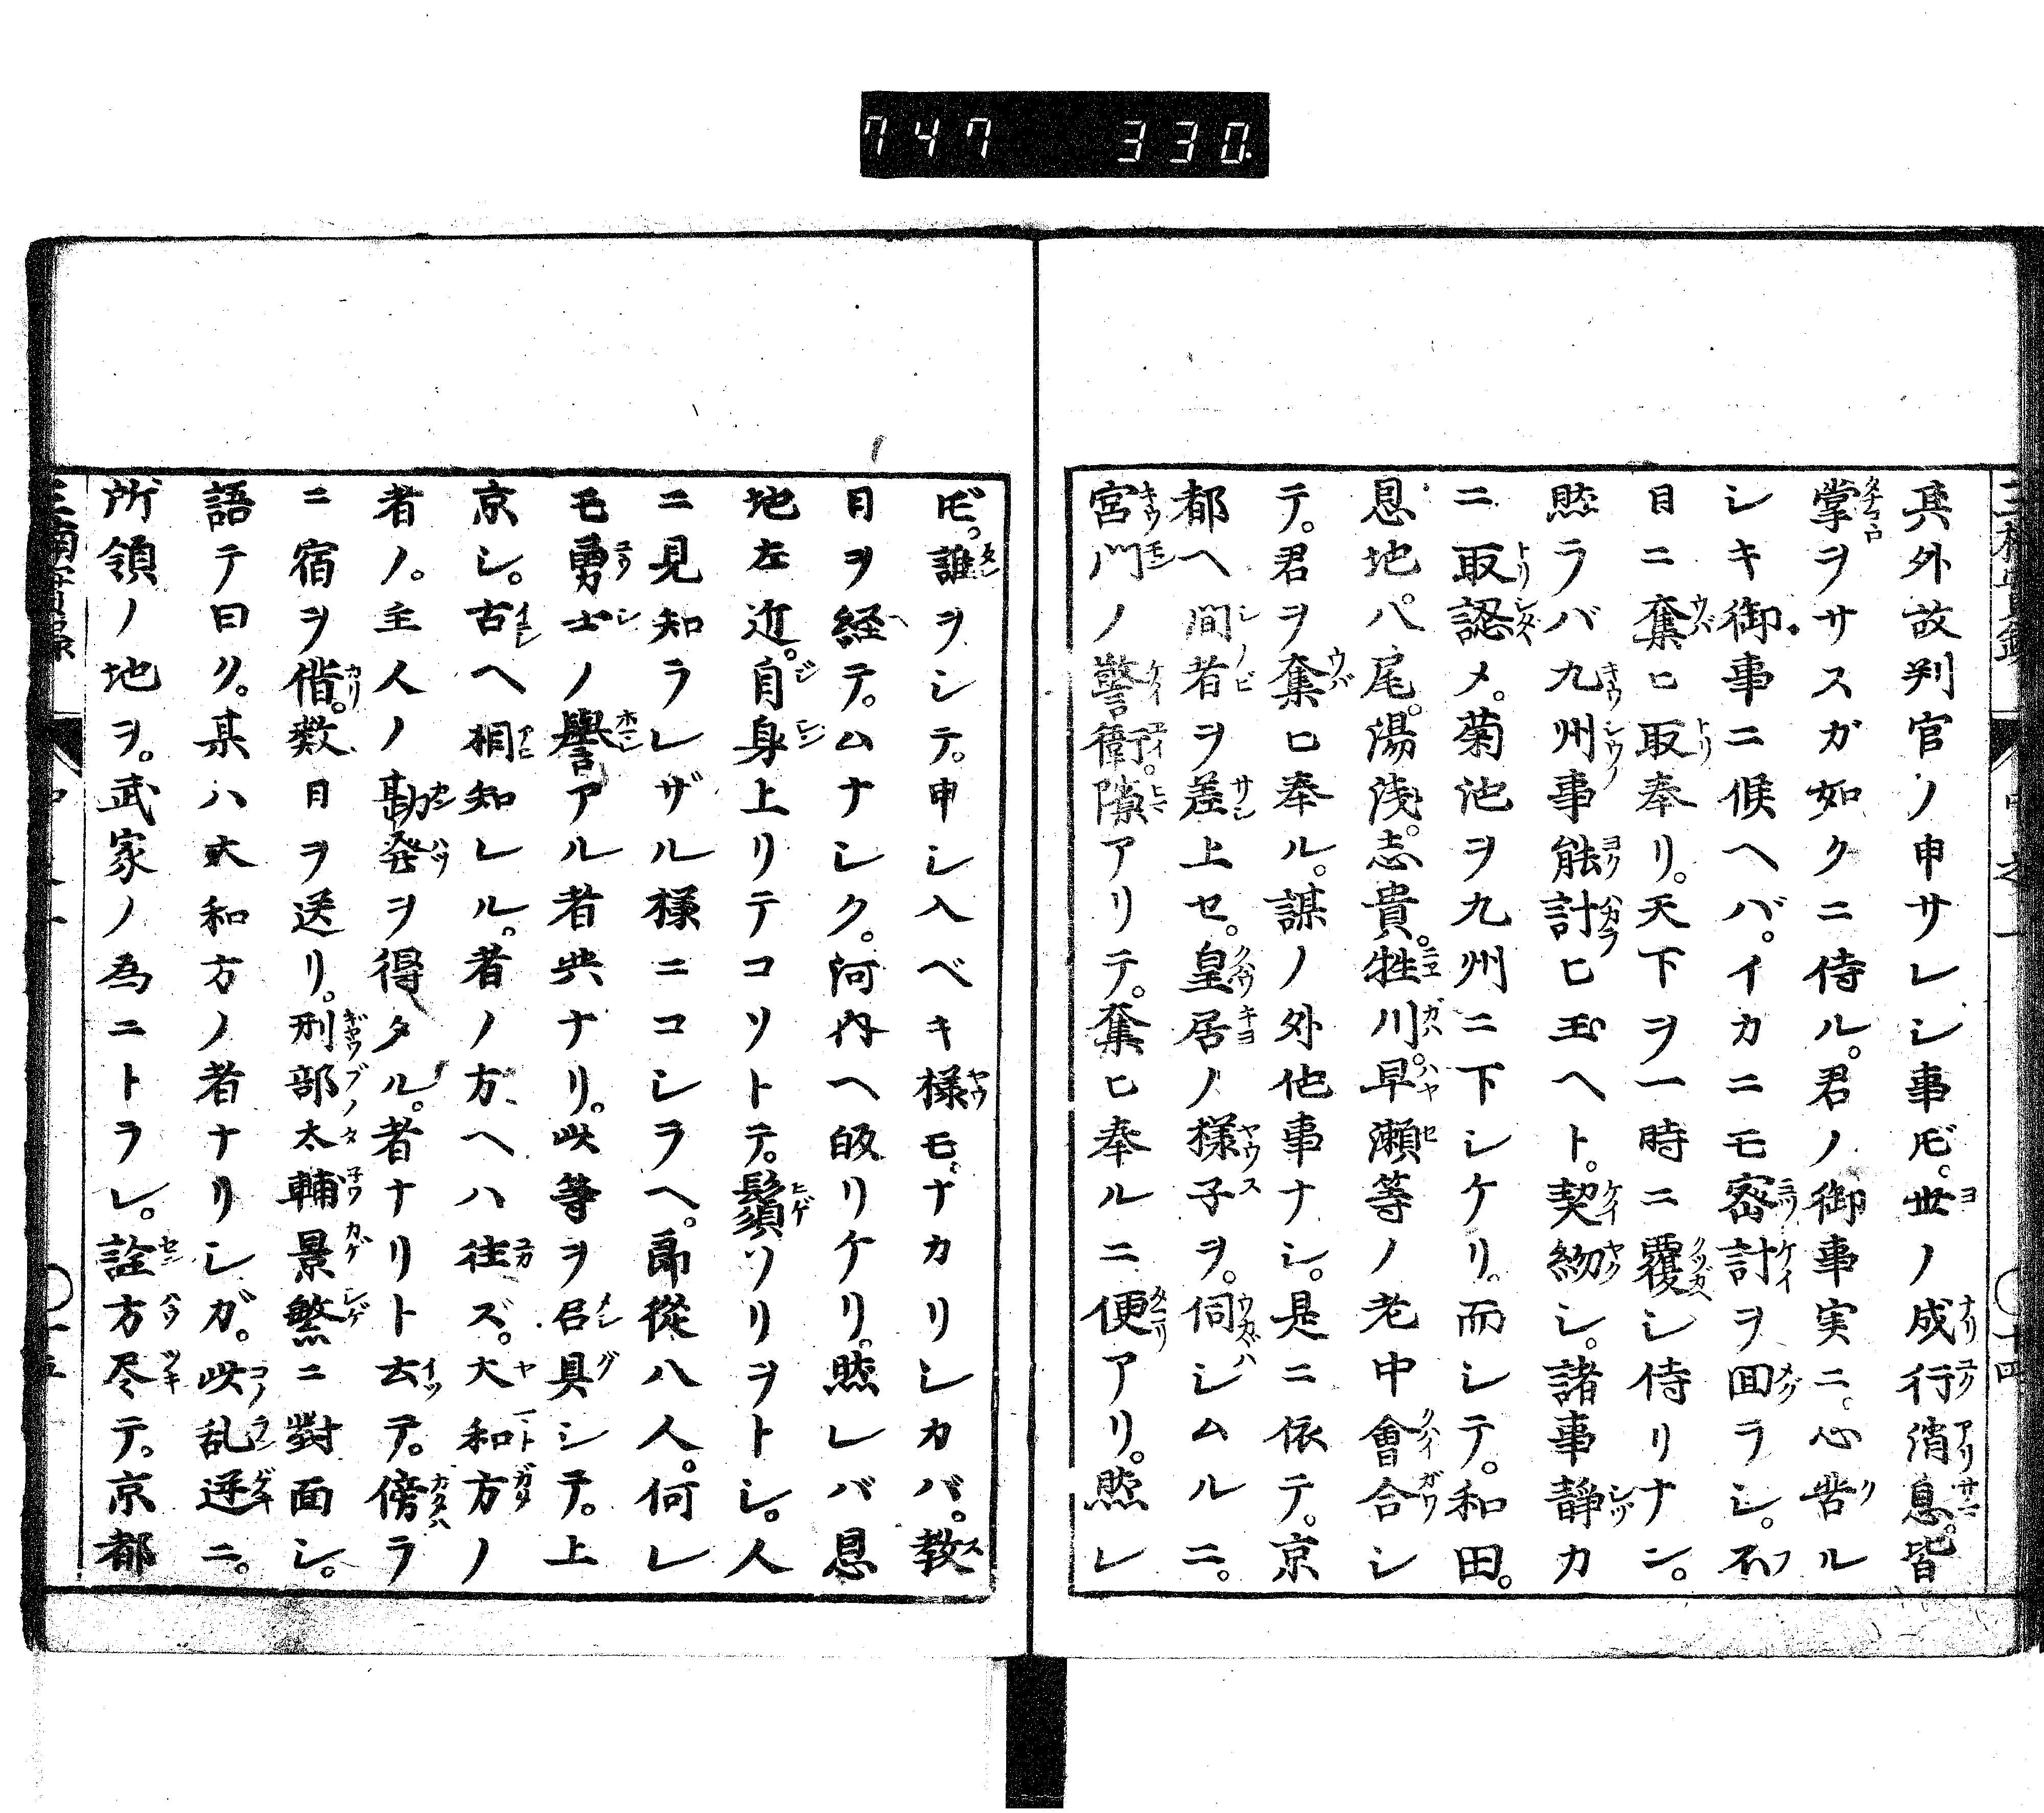 747 330
其外故判官ノ申サレシ事𪜈。世ノ成行消息。皆
掌ヲサスガ如クニ侍ル。君ノ御事実ニ。心苦ル
シキ御事ニ候ヘバ。イカニモ密計ヲ囬ラシ。不
日ニ奪ヒ取奉リ。天下ヲ一時ニ覆シ侍リナン。
然ラバ九州事能計ヒ玉ヘト。契約シ。諸事静カ
ニ取認メ。菊池ヲ九州ニ下シケリ。而シテ。和田。
恩地。八尾。湯浅。志貴。牲川。早瀬等ノ老中會合シ
テ。君ヲ奪ヒ奉ル。謀ノ外他事ナシ。是ニ依テ。京
都ヘ間者ヲ差上セ。皇居ノ様子ヲ。伺シムルニ。
宮門ノ警衛。隙アリテ。奪ヒ奉ルニ便アリ。然レ
𪜈。誰ヲシテ。申シ入ベキ様モ。ナカリシカバ。数
日ヲ経テ。ムナシク。河内ヘ皈リケリ。然レバ恩
地左近。自身上リテコソトテ。鬚ソリヲトシ。人
ニ見知ラレザル様ニコシラヘ。郎従八人。何レ
モ勇士ノ譽アル者共ナリ。此等ヲ召具シテ。上
京シ。古ヘ相知レル。者ノ方ヘハ往ズ。大和方ノ
者ノ。主人ノ勘発ヲ得タル。者ナリト云テ。傍ラ
ニ宿ヲ借。数日ヲ送リ。刑部太輔景繁ニ對面シ。
語テ曰ク。某ハ大和方ノ者ナリシガ。此乱逆ニ。
所領ノ地ヲ。武家ノ為ニトラレ。詮方尽テ。京都